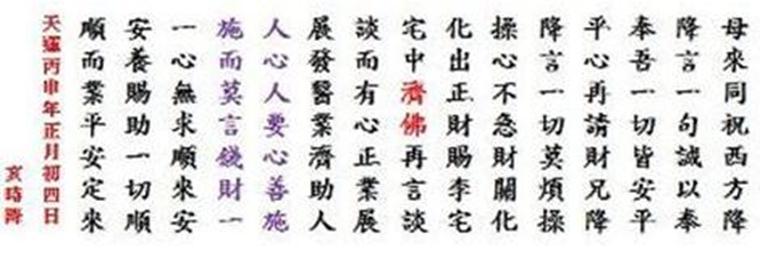 母來同祝西方降
降言一句誠以奉
奉吾一一切皆安平
平心再請財兄降
降言一切莫煩操
操心不急財關化
化出正財賜李宅
宅中濟佛再言談
談而有心正業展
展發醫業濟助人
人心人要心善施
施而莫言錢財一
一心無求順來安
安養賜助一切順
順而業平安定來
天運丙申年正月初四日
亥時降